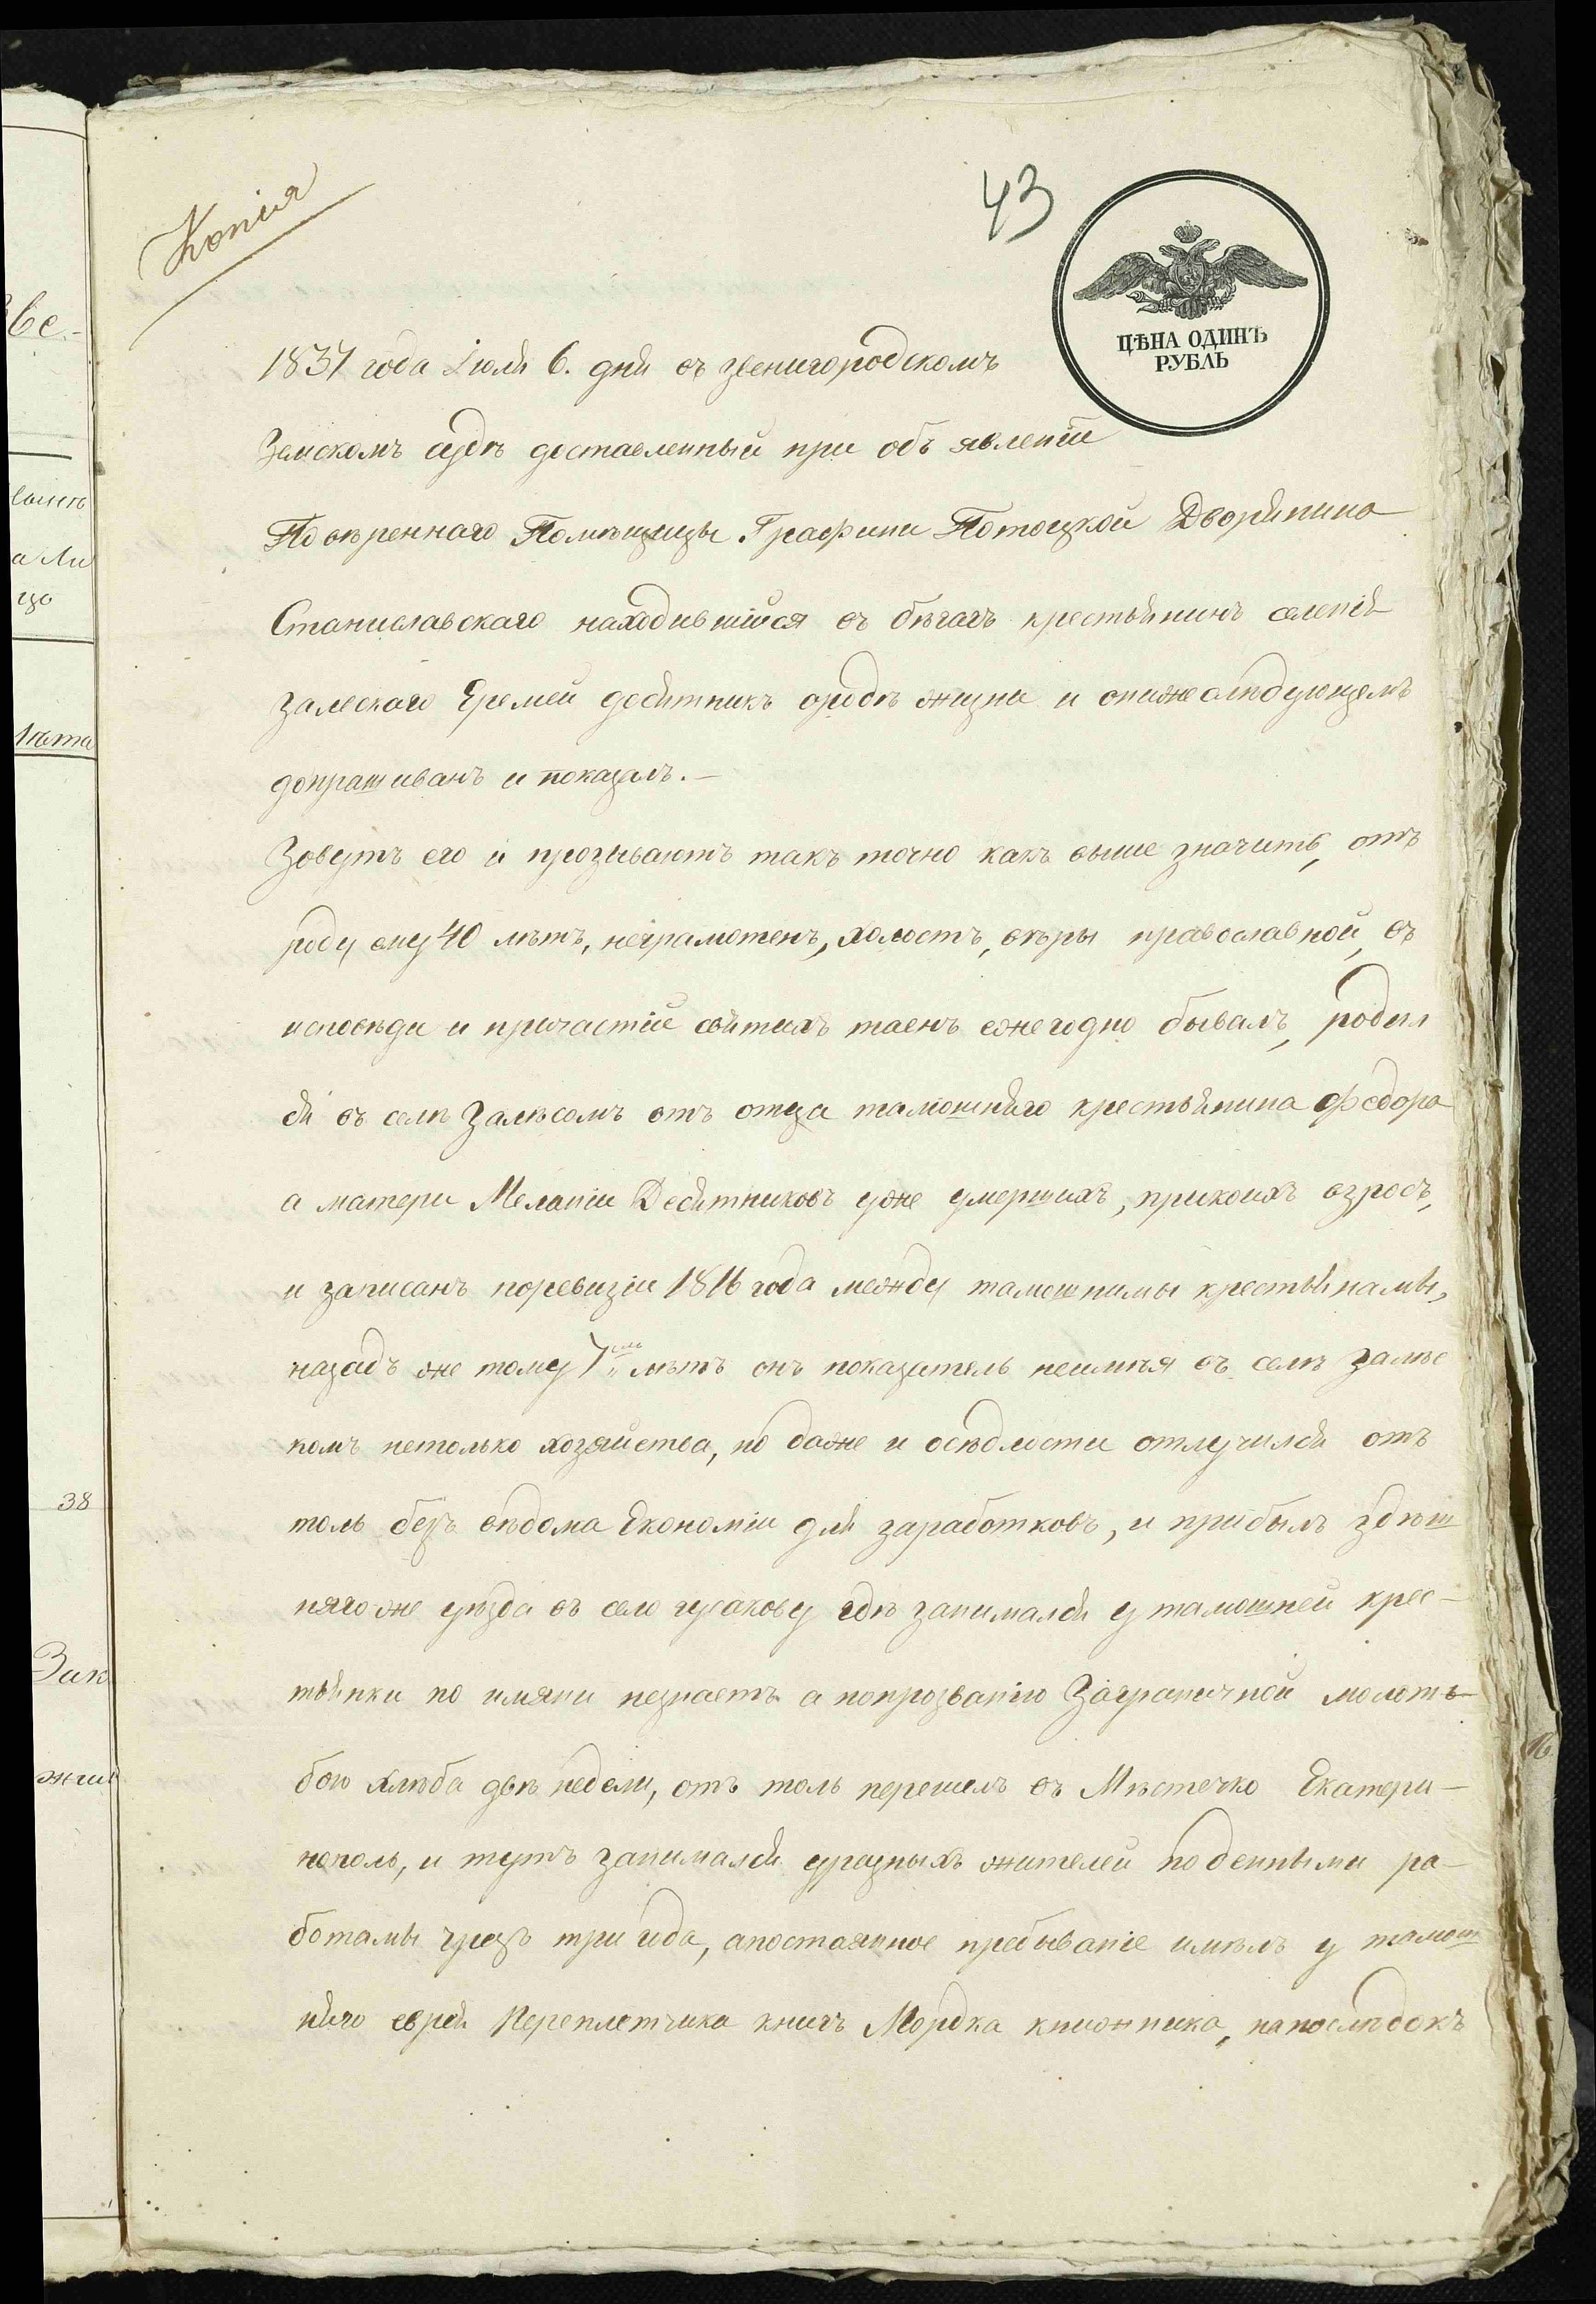 Копія
43
ЦѢНА ОДИНЪ
РУБЛЬ
1837 года Іюля 6. дня въ звенигородскомъ
Земскомъ судѣ доставленный при объявленіи
Повѣреннаго Помѣщицы Графини Потоцкой Дворянина
Станиславскаго находившійся въ бѣгахъ крестьянинъ селенія
залескаго Еремей десятникъ ородѣ жизни и онижеслѣдующемъ
допрашиванъ и показалъ.—
Зовутъ его и прозываютъ такъ точно какъ выше значитъ, отъ
роду ему 40 лѣтъ, неграмотенъ, холостъ, вѣры православной, въ
исповѣди и причастіе святихъ таенъ ежегодно бывалъ, родил
ся въ селѣ Залѣсомъ отъ отца тамошняго крестьянина Федора
а матери Меланіи Десятниковъ уже умершихъ, прикоихъ взросъ,
и записанъ поревизіи 1816 года между тамошнимы крестьянамы,
назадъ же тому 7 ми лѣтъ онъ показатель неимѣя въ селѣ залѣс
комъ нетолько хозяйства, но даже и осѣдлости отлучился отъ
толь безъ вѣдома Економіи для заработковъ, и прибылъ здѣш
нягоже уѣзда въ село гусакову гдѣ занимался у тамошней крес-
тьянки по имяни незнаетъ а попрозванію Заграничной молоть-
бою хлѣба двѣ недели, отъ толь перешелъ въ Мѣстечко Екатери-
нополь, и тутъ занимался уразныхъ жителей поденными ра-
ботамы чрезъ три года, апостаянное пребываніе имѣлъ у тамош
няго еврея Переплетчика книгъ Мордка книжника, напослѣдокъ
38
Зак
16